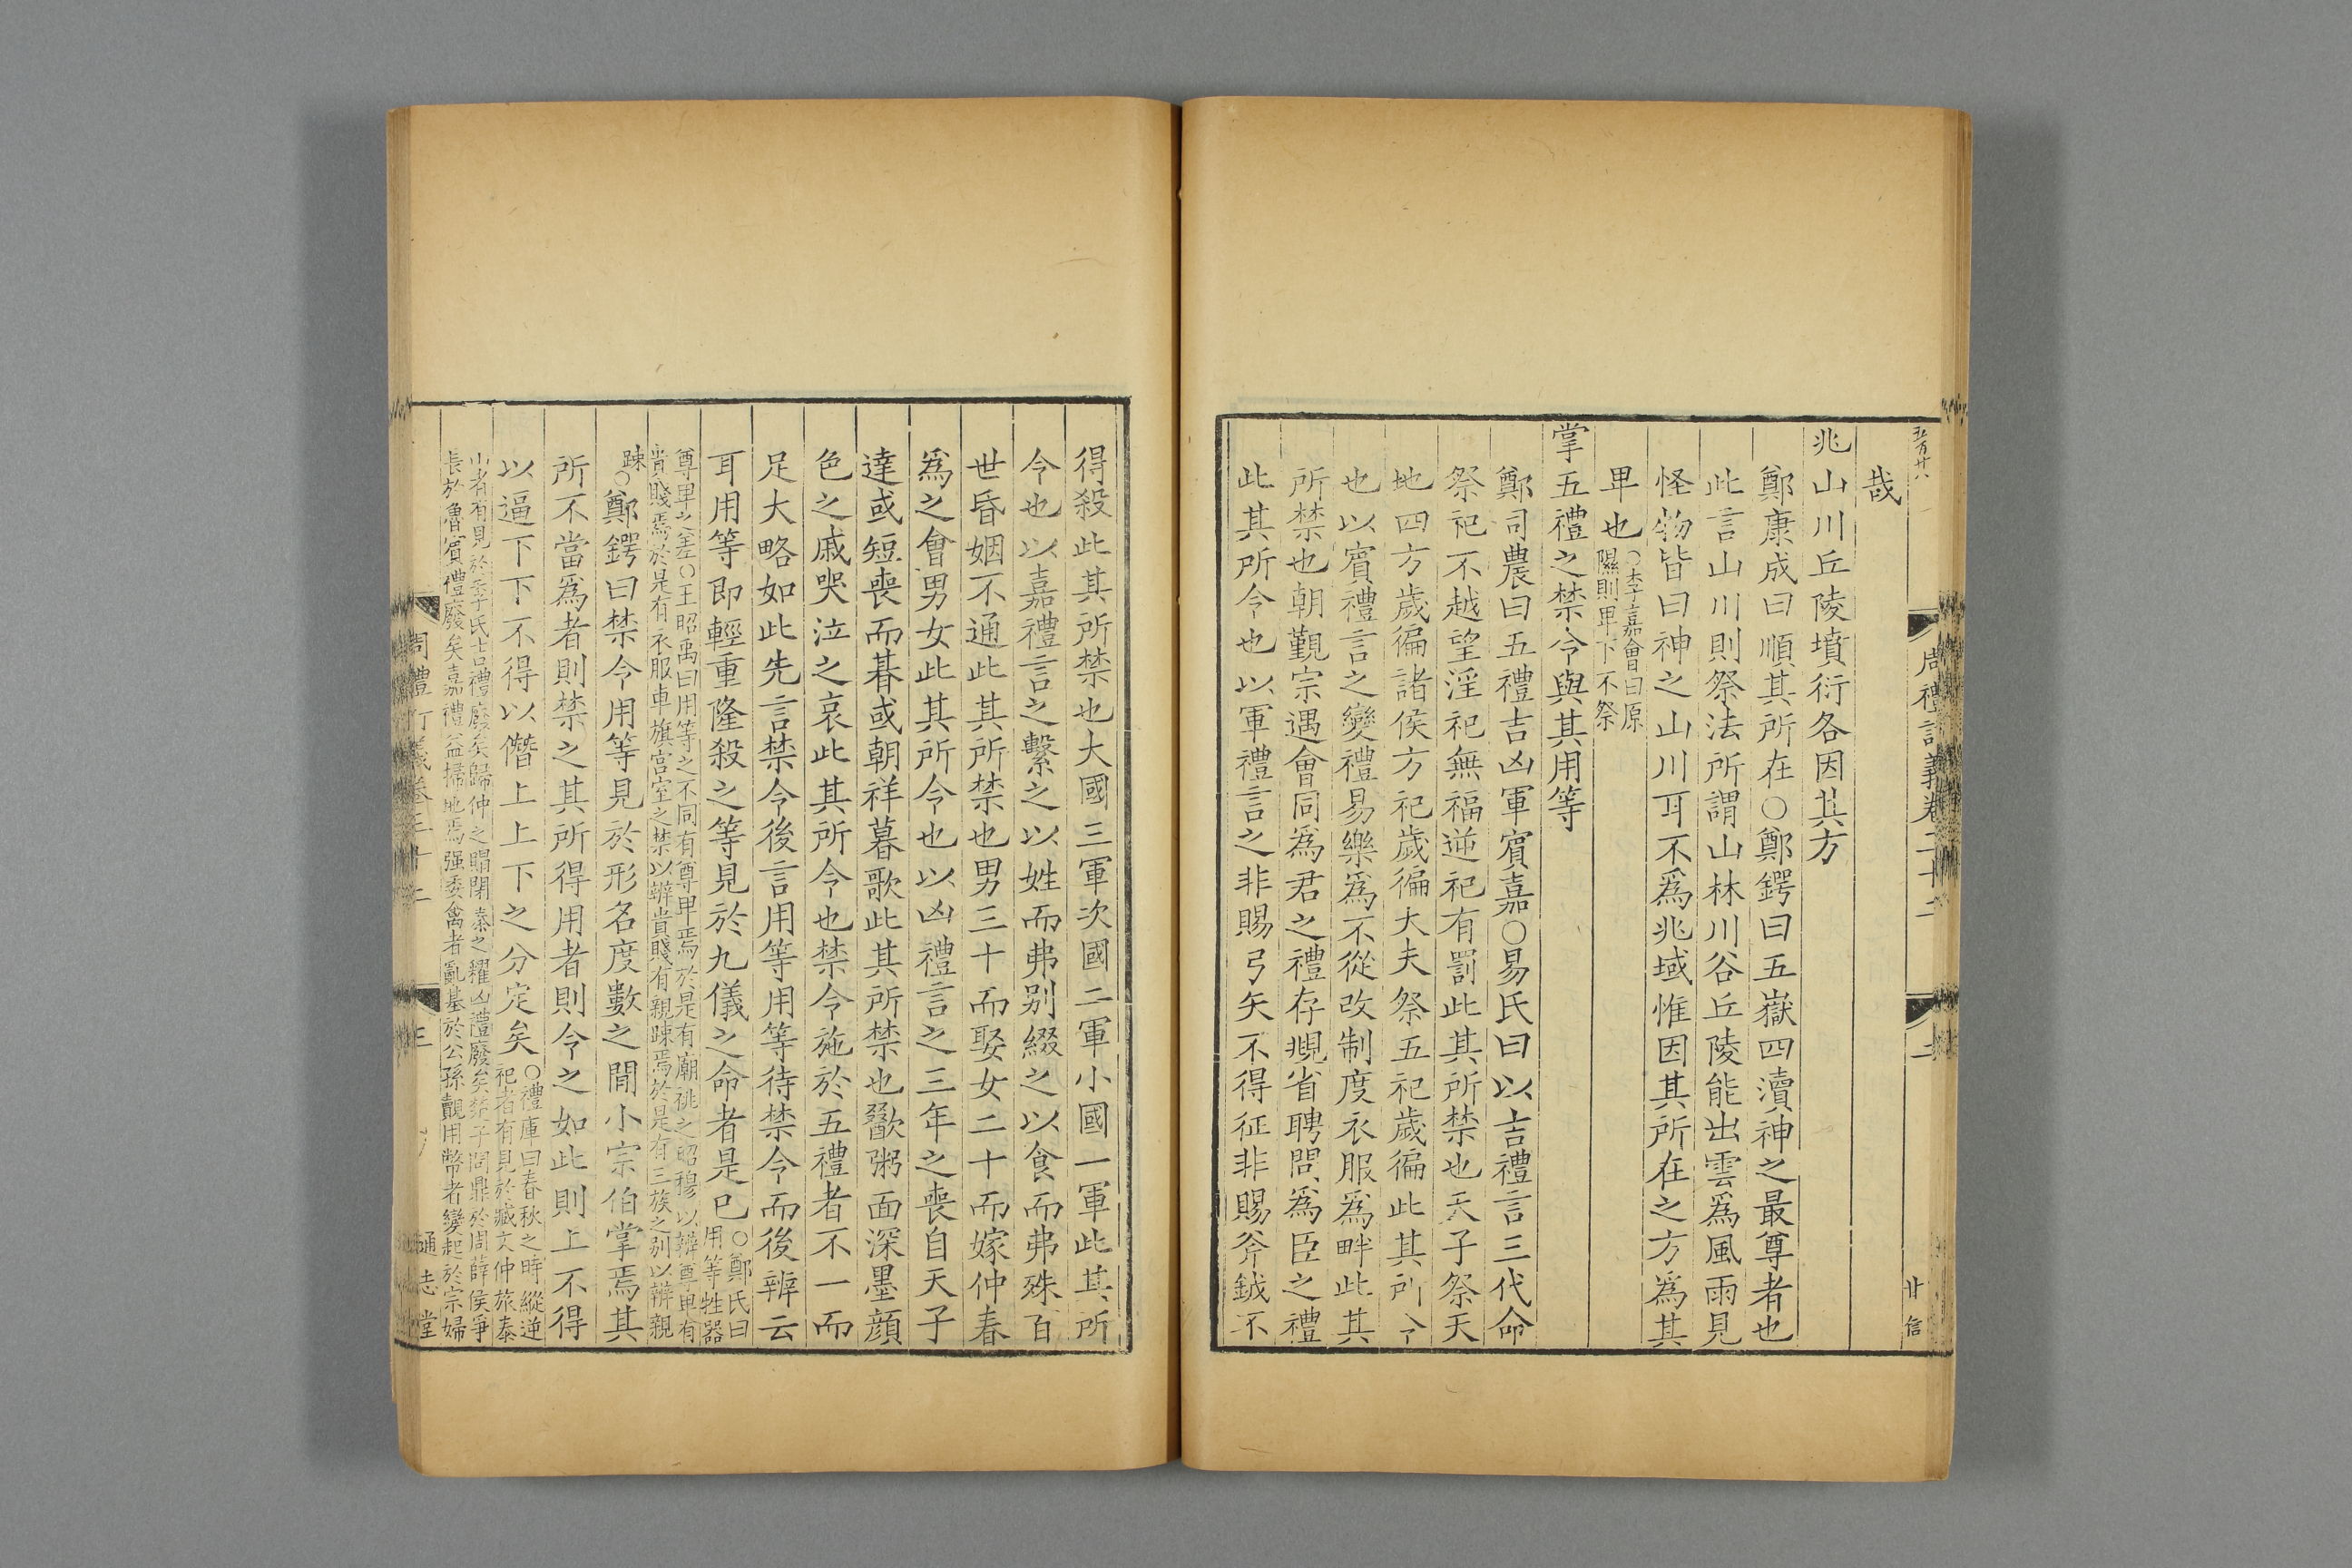 五百廿八
周禮訂義卷三十二
廿信
哉
兆山川丘陵墳衍各因其方
鄭康成曰順其所在○鄭鍔曰五嶽四瀆神之最尊者也
此言山川則祭法所謂山林川谷丘陵能出雲爲風雨見
怪物皆曰神之山川耳不爲兆域惟因其所在之方爲其
卑也
○李嘉會曰原
隰則卑下不祭
掌五禮之禁令與其用等
鄭司農曰五禮吉凶軍賓嘉○易氏曰以吉禮言三代命
祭祀不越望淫祀無福逆祀有罰此其所禁也天子祭天
地四方歲徧諸侯方祀歲徧大夫祭五祀歲徧此其所令
也以賓禮言之變禮易樂爲不從改制度衣服爲畔此其
所禁也朝覲宗遇會同爲君之禮存覜省聘問爲臣之禮
此其所令也以軍禮言之非賜弓矢不得征非賜斧鉞不
得殺此其所禁也大國三軍次國二軍小國一軍此其所
令也以嘉禮言之繫之以姓而弗别綴之以食而弗殊百
世昏姻不通此其所禁也男三十而娶女二十而嫁仲春
爲之會男女此其所令也以凶禮言之三年之喪自天子
達或短喪而朞或朝祥暮歌此其所禁也歠粥面深墨顔
色之戚哭泣之哀此其所令也禁令施於五禮者不一而
足大略如此先言禁令後言用等用等待禁令而後辨云
耳用等即輕重隆殺之等見於九儀之命者是已
○鄭氏曰
用等牲器
尊卑之差○王昭禹曰用等之不同有尊卑焉於是有廟祧之昭穆以辨尊卑有
貴賤焉於是有衣服車旗宫室之禁以辨貴賤有親踈焉於是有三族之别以辨親
踈
○鄭鍔曰禁令用等見於形名度數之間小宗伯掌焉其
所不當爲者則禁之其所得用者則令之如此則上不得
以逼下下不得以僭上上下之分定矣
○禮庫曰春秋之時縱逆
祀者有見於臧文仲旅泰
山者有見於季氏吉禮廢矣歸仲之賵閉秦之糴凶禮廢矣荼子問鼎於周薛侯爭
長於魯賓禮廢矣嘉禮益掃地焉强委禽者亂基於公孫覿用幣者變起於宗婦
周禮訂義卷三十二
通志堂